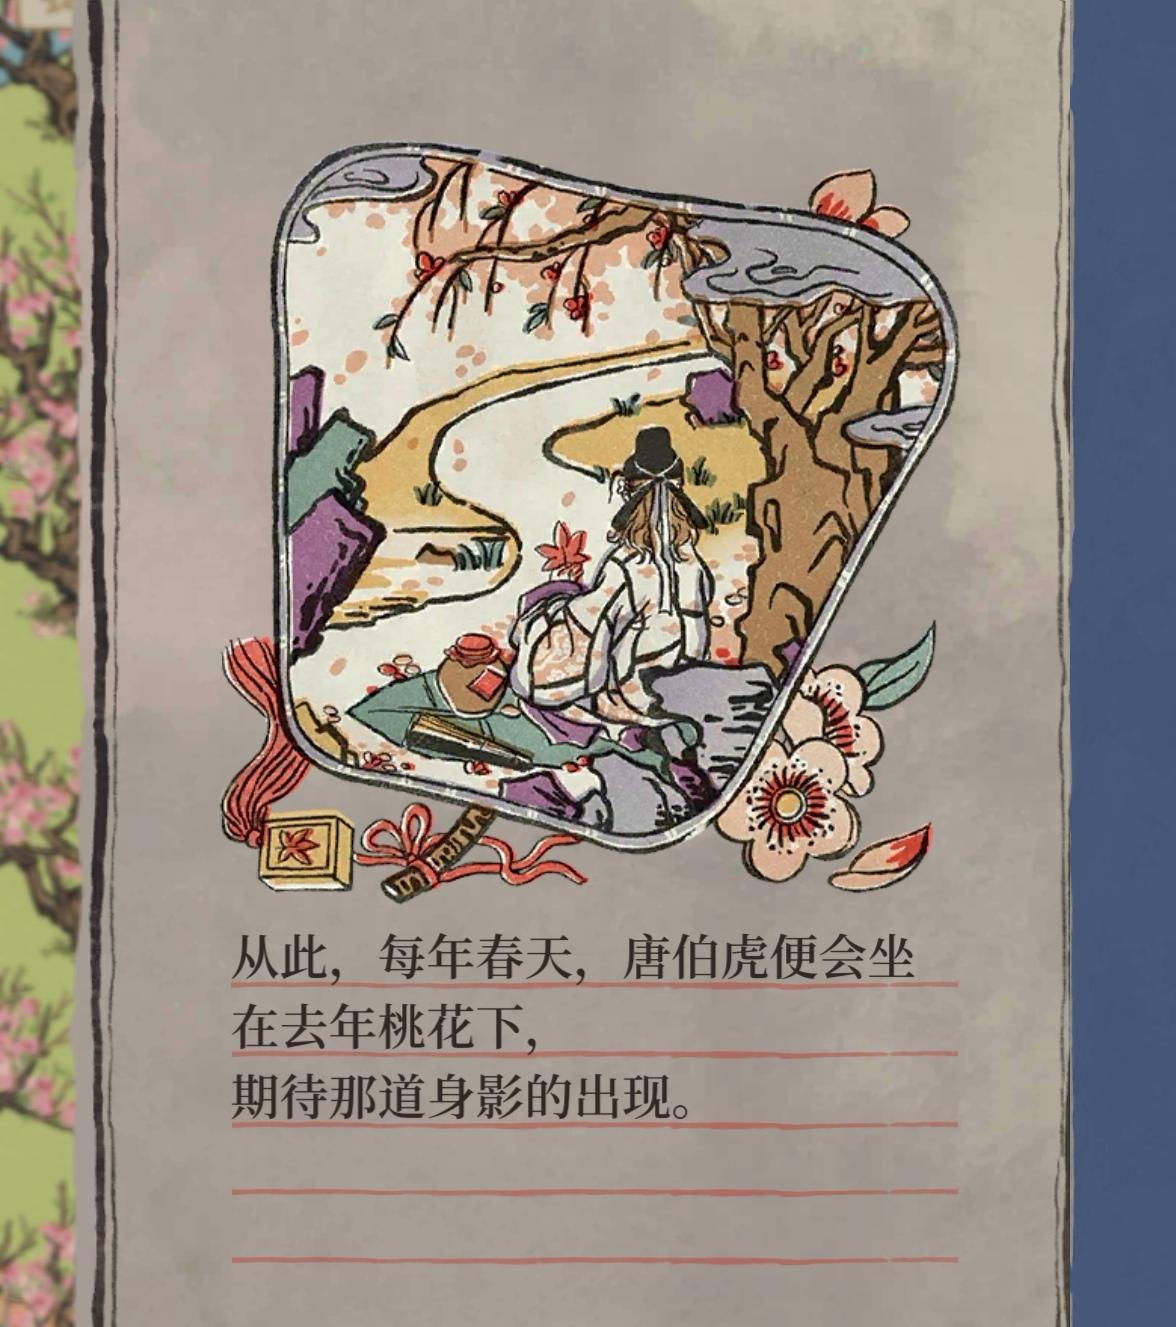 从此，每年春天，唐伯虎便会坐
在去年桃花下，
期待那道身影的出现。